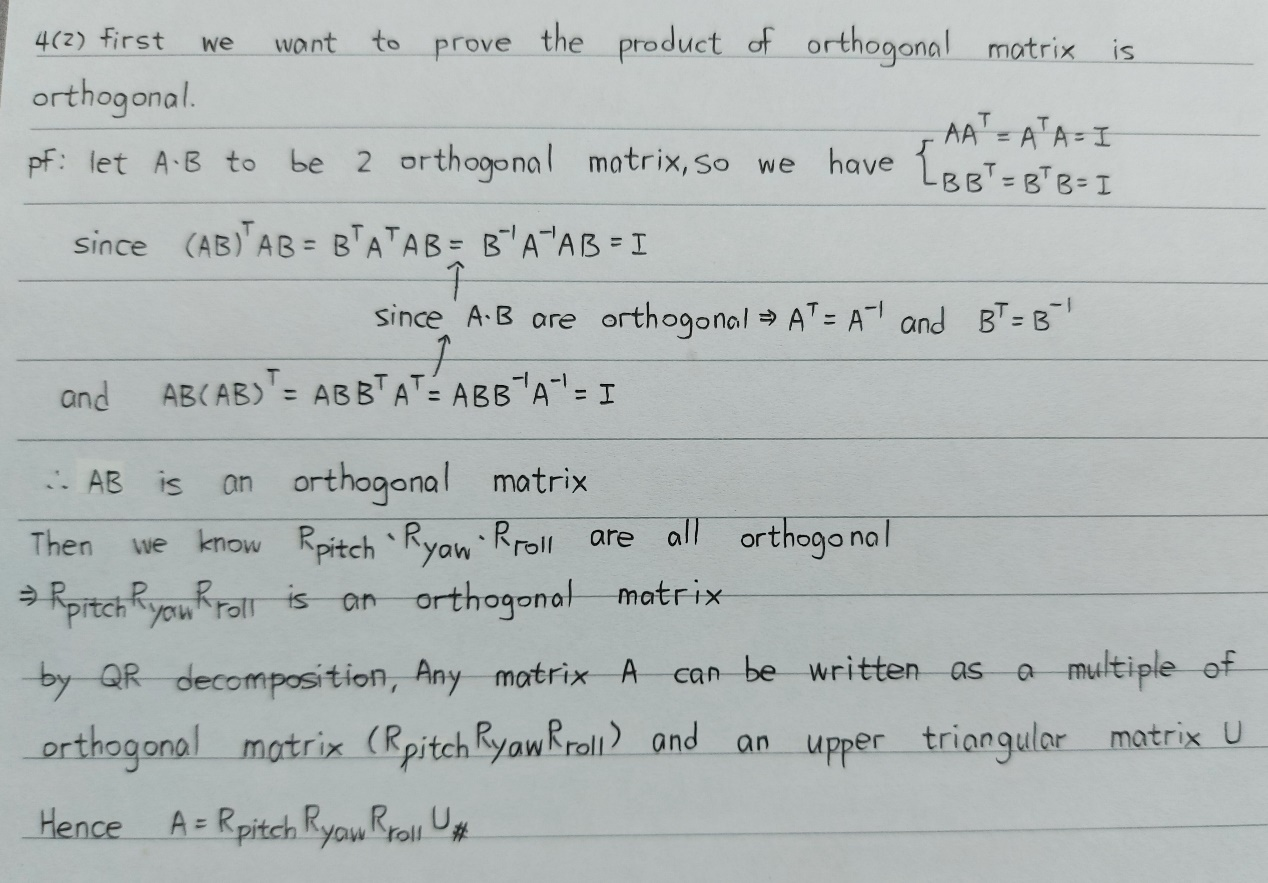 4(2) first we want to prove the product of orthogonal matrix is
orthogonal.
pf: let A·B to be 2 orthogonal matrix, so we have { AAᵀ = AᵀA = I
BBᵀ = BᵀB = I
since (AB)ᵀAB = BᵀAᵀAB = B⁻¹A⁻¹AB = I
↑
since A·B are orthogonal ⇒ Aᵀ = A⁻¹ and Bᵀ = B⁻¹
↑
and AB(AB)ᵀ = ABBᵀAᵀ = ABB⁻¹A⁻¹ = I
∴ AB is an orthogonal matrix
Then we know Rpitch、Ryaw·Rroll are all orthogonal
⇒ RpitchRyawRroll is an orthogonal matrix
by QR decomposition, Any matrix A can be written as a multiple of
orthogonal matrix (RpitchRyawRroll) and an upper triangular matrix U
Hence A = RpitchRyawRroll U #